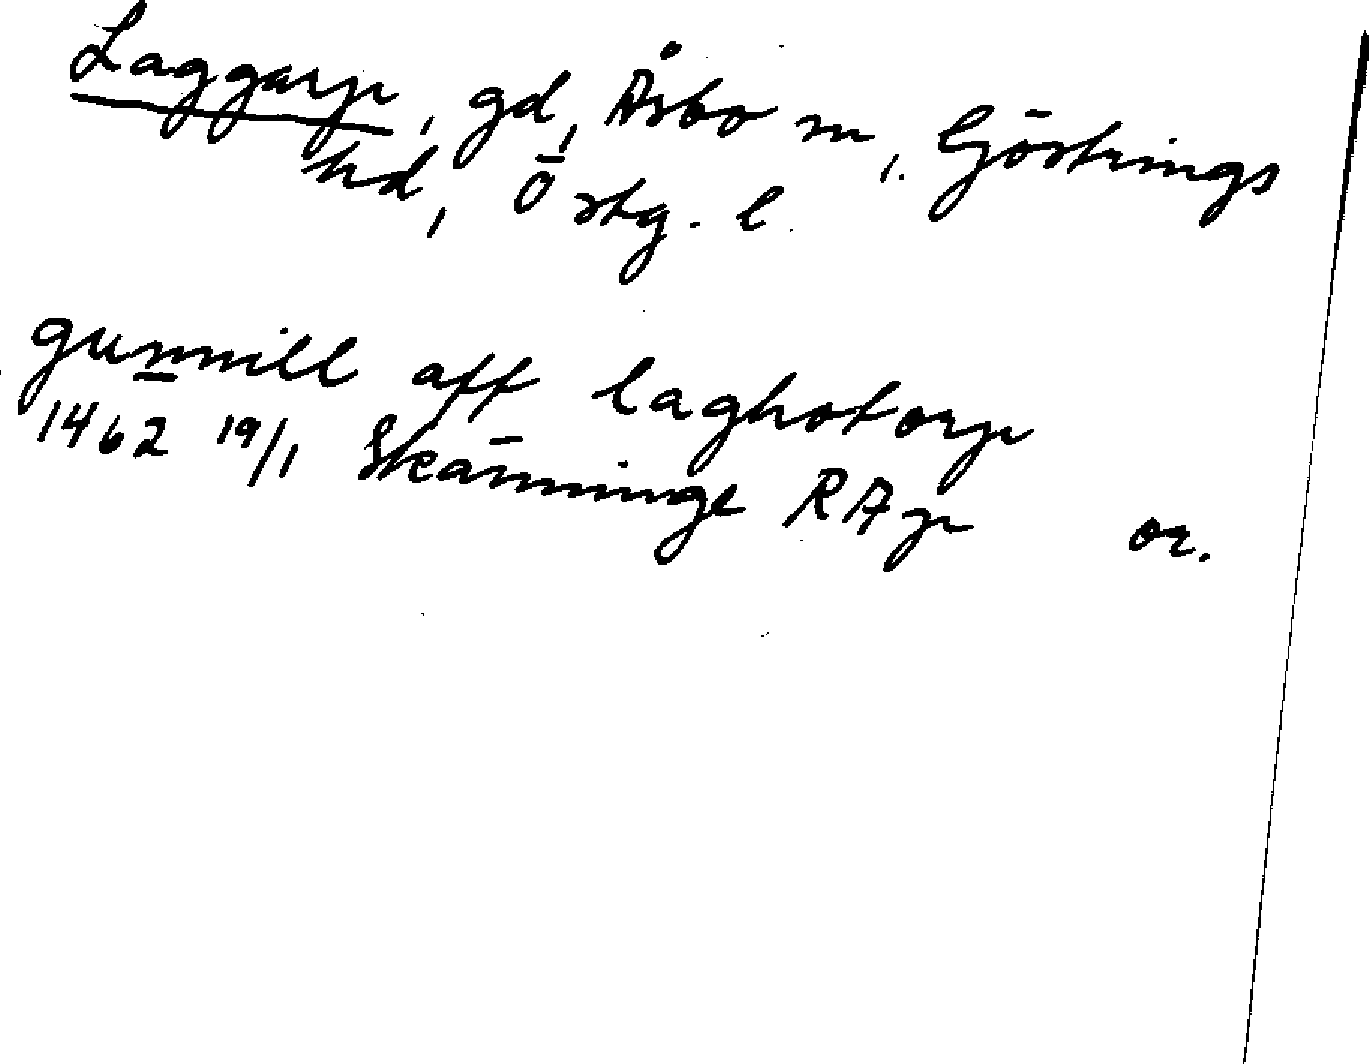 Laggarp, gd, Åsbo sn, Göstrings
hd, Östg. l.
gunnill aff laghotorp
1462 19/1 Skänninge RAp or.